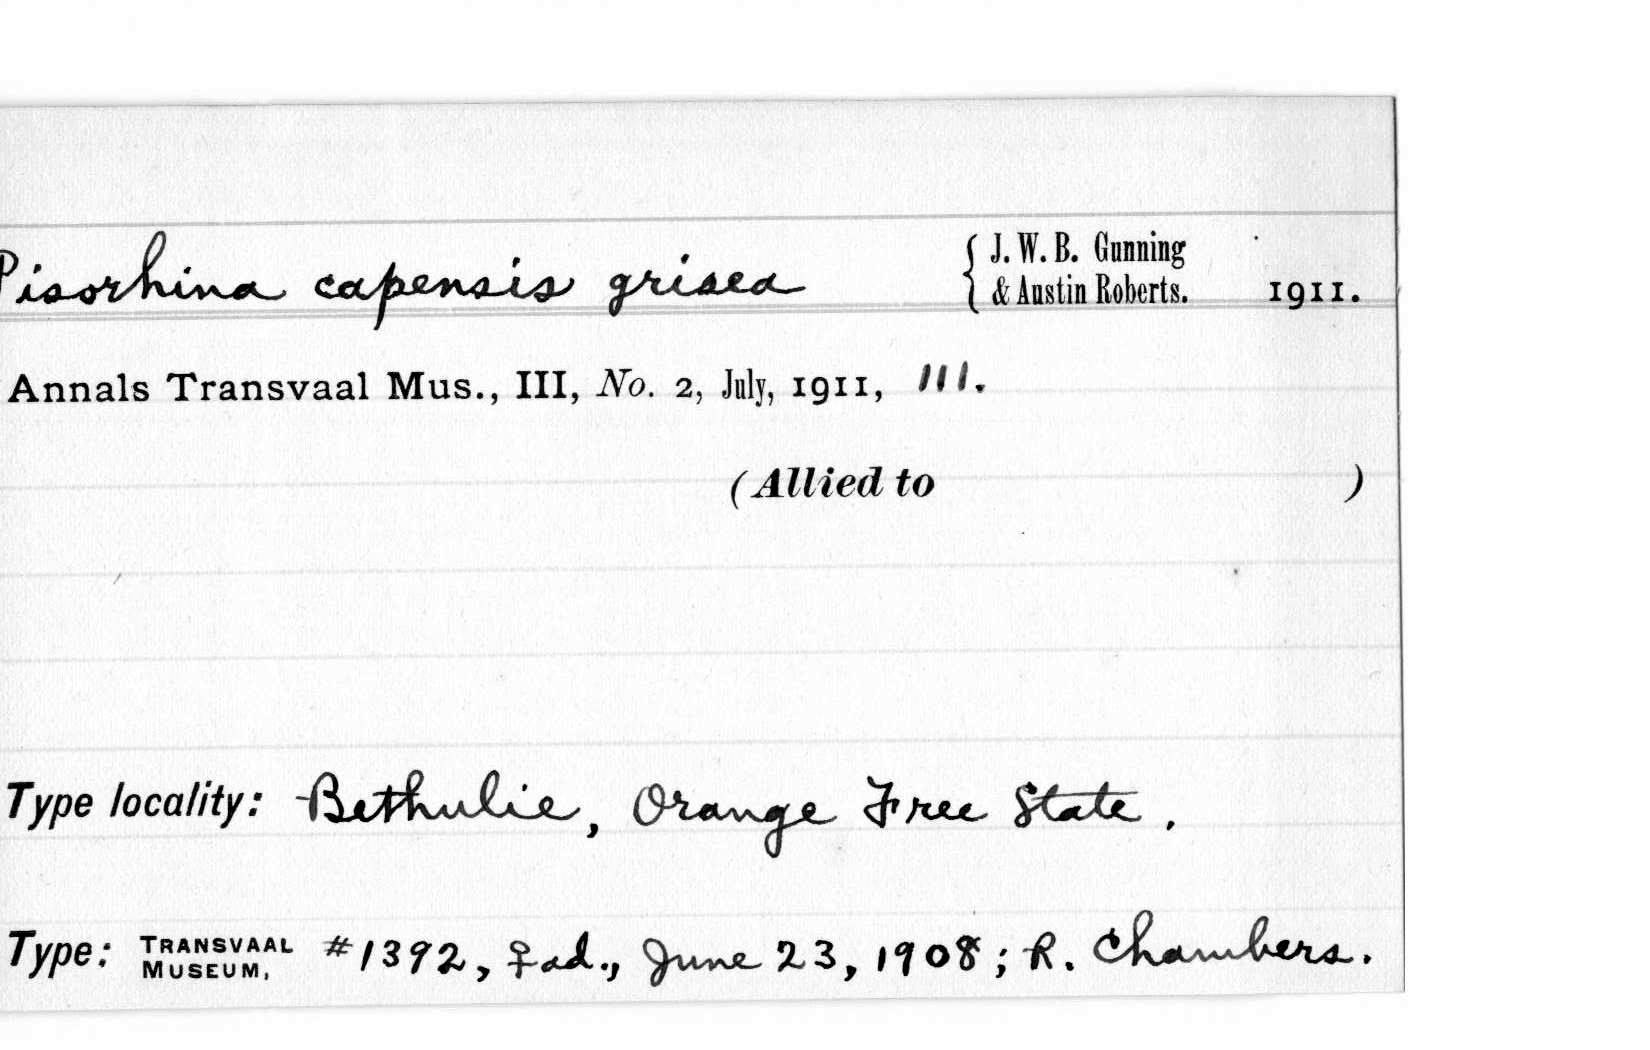 Pisorhina capensis grisea { J. W. B. Gunning
& Austin Roberts. 1911.
Annals Transvaal Mus., III, No. 2, July, 1911, 111.
(Allied to )
Type locality: Bethulie, Orange Free State.
Type: TRANSVAAL MUSEUM, #1392, ♀ ad., June 23, 1908; R. Chambers.